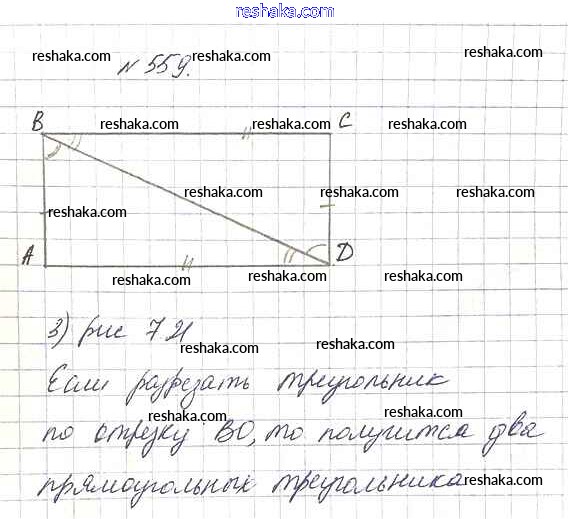 reshaka.com
№ 559.
reshaka.com reshaka.com reshaka.com
B C
reshaka.com reshaka.com reshaka.com
reshaka.com reshaka.com reshaka.com
reshaka.com
A D
reshaka.com reshaka.com reshaka.com
3) рис 721
reshaka.com reshaka.com
Если разрезать треугольник
reshaka.com reshaka.com
по отрезку BO, то получится два
прямоугольных треугольника
reshaka.com